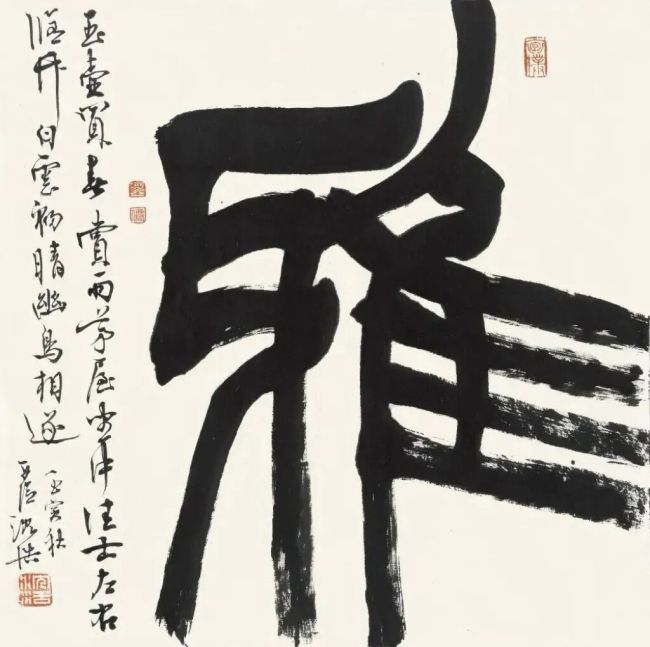 雅
玉壺買春賞雨茅屋坐中佳士左右
脩竹白雲初晴幽鳥相逐
壬寅秋